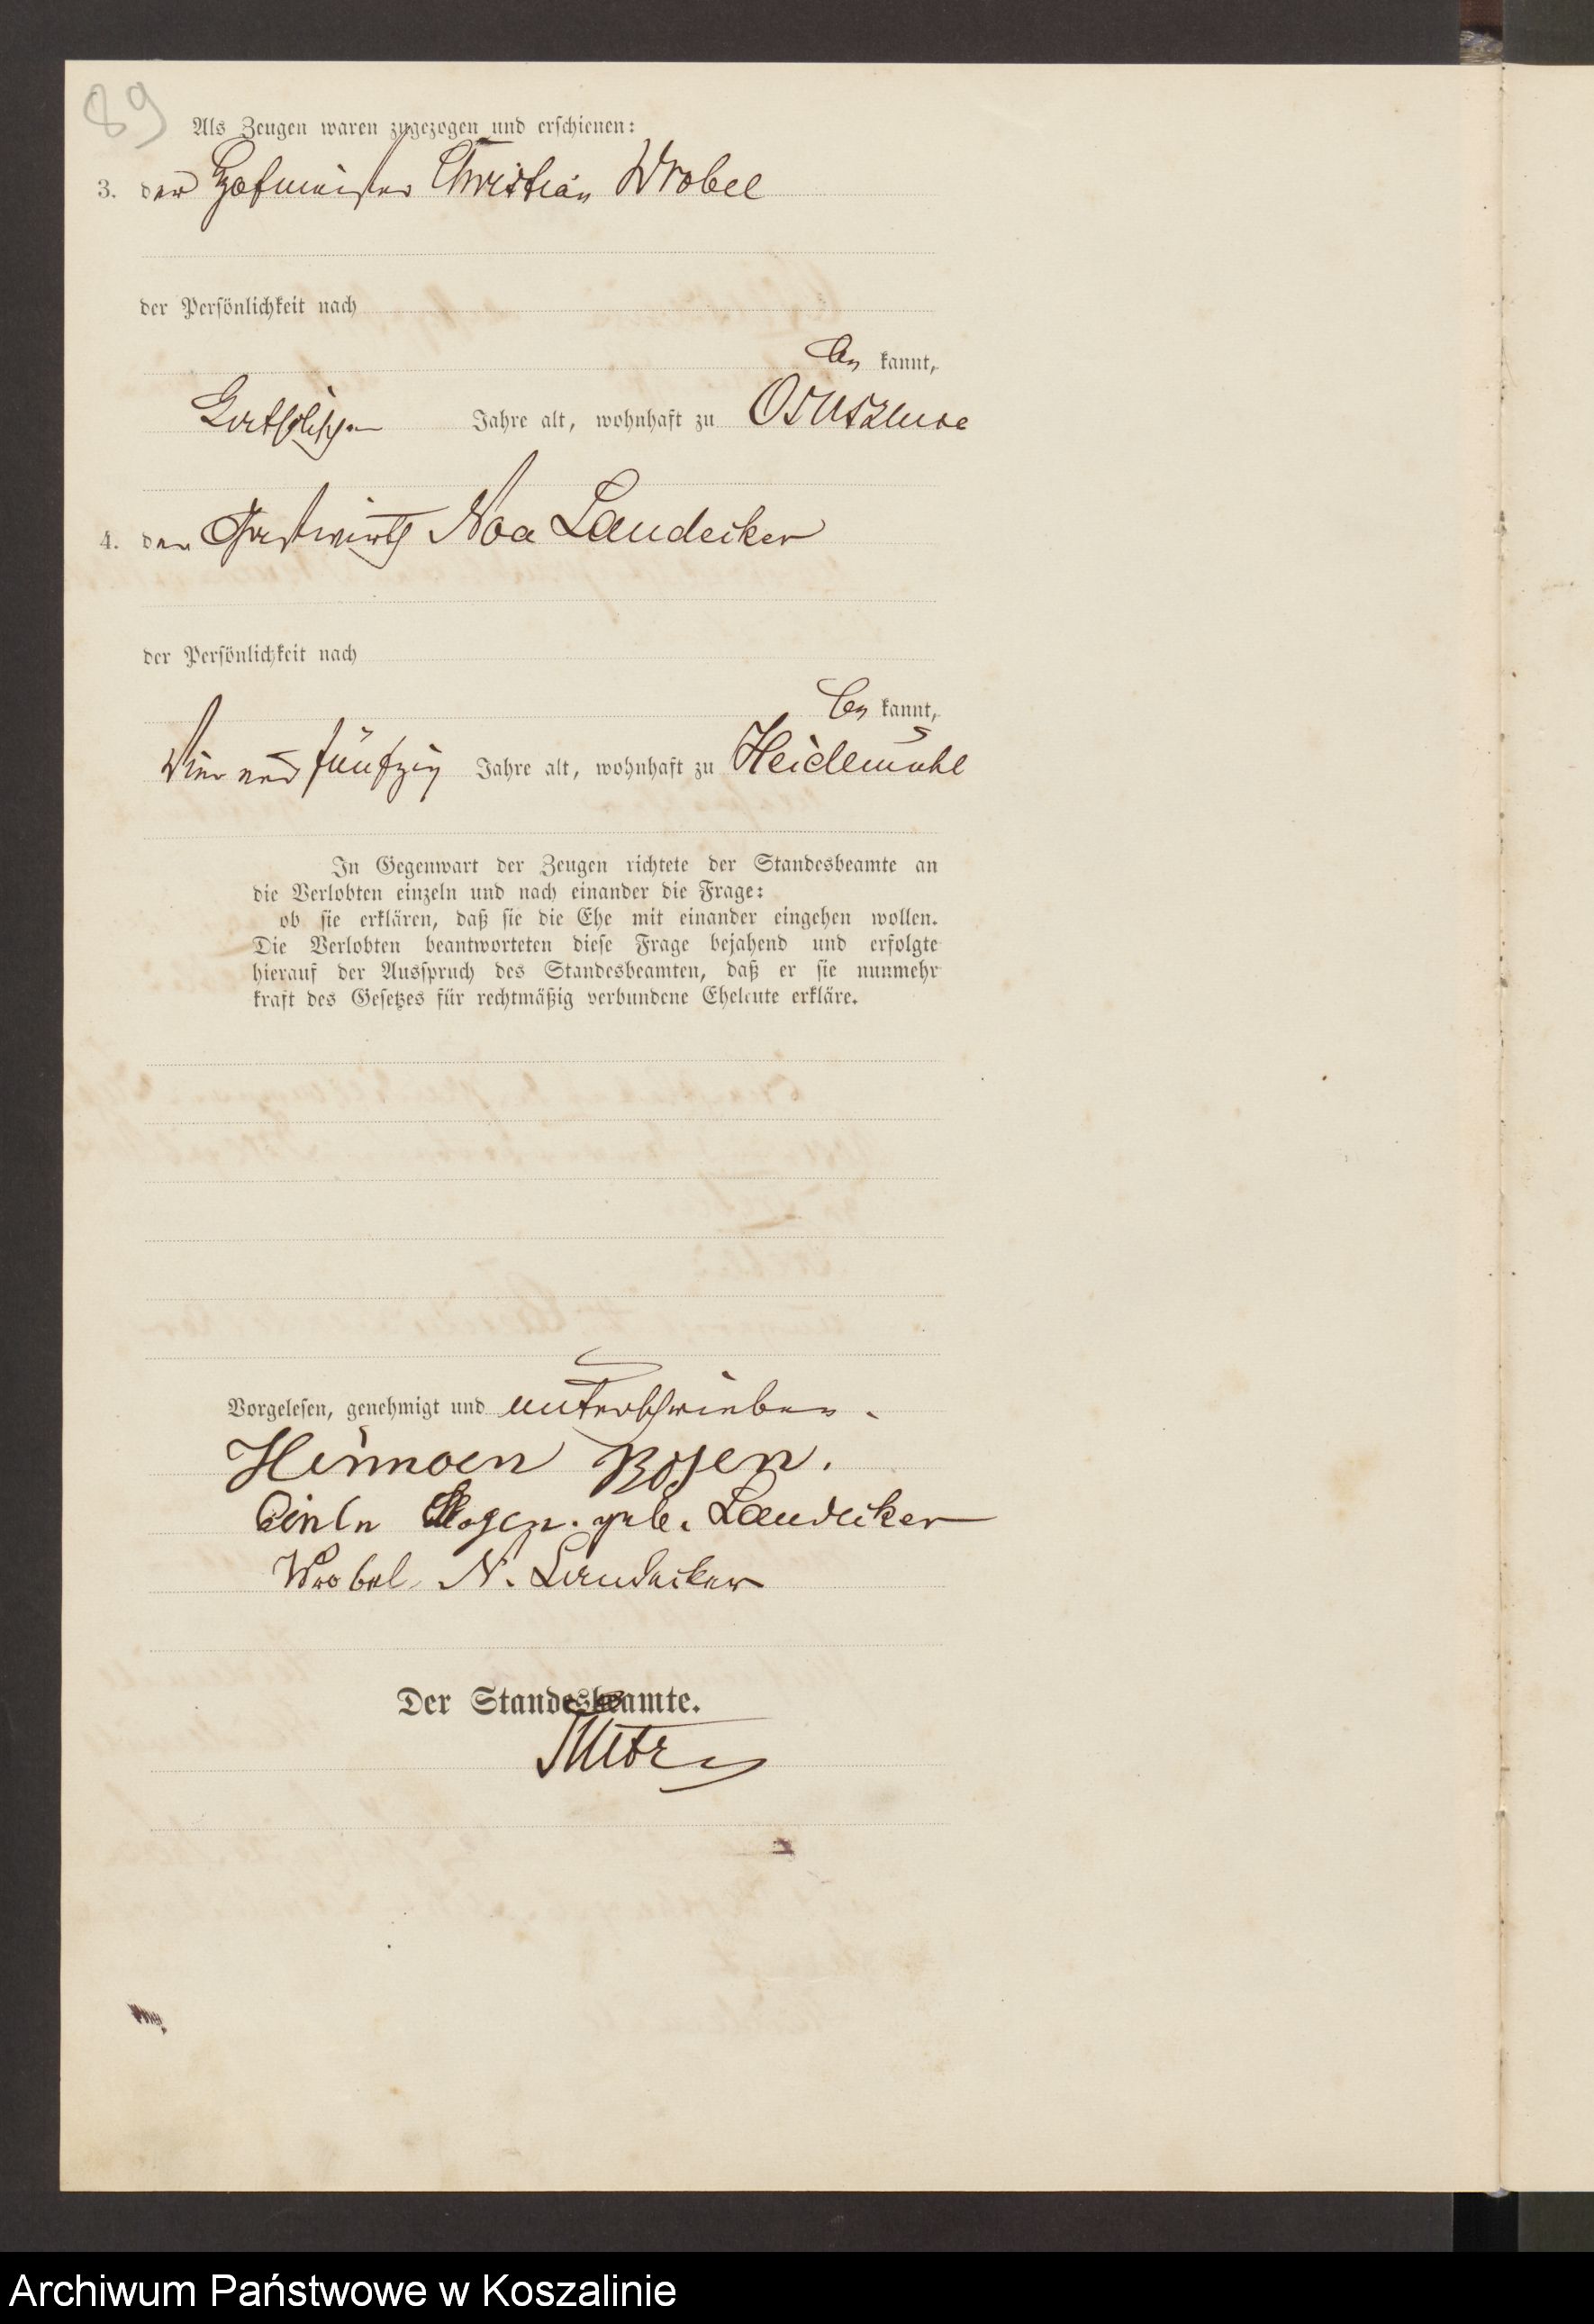 89
Als Zeugen waren zugezogen und erschienen:
3. der Hofmeister Christian Wrobel
der Persönlichkeit nach
be kannt,
Jahre alt, wohnhaft zu
4. der Gastwirth Noa Landecker
der Persönlichkeit nach
be kannt,
Vier und fünfzig Jahre alt, wohnhaft zu Heidemühl
In Gegenwart der Zeugen richtete der Standesbeamte an
die Verlobten einzeln und nach einander die Frage:
ob sie erklären, daß sie die Ehe mit einander eingehen wollen.
Die Verlobten beantworteten diese Frage bejahend und erfolgte
hierauf der Ausspruch des Standesbeamten, daß er sie nunmehr
kraft des Gesetzes für rechtmäßig verbundene Eheleute erkläre.
Vorgelesen, genehmigt und unterschrieben.
geb. Landecker
Wrobel N. Landecker
Der Standesbeamte.
Archiwum Państwowe w Koszalinie